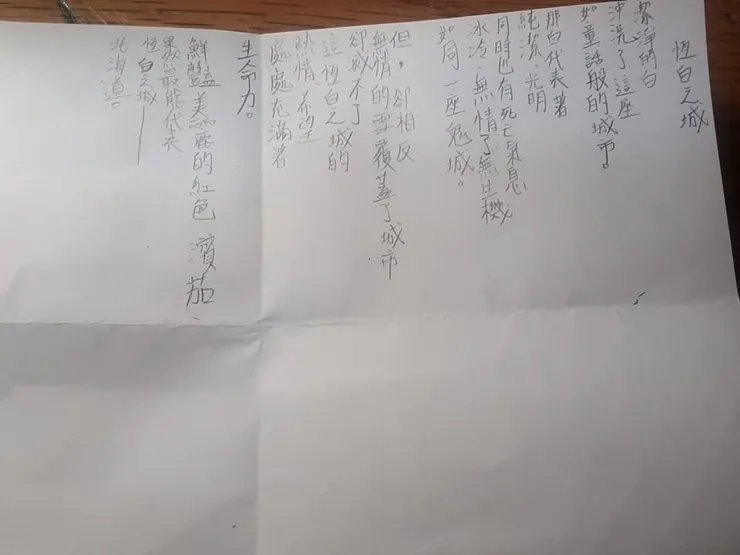 恆白之城
潔淨的白
沖洗了這座
如童話般的城市。
那白代表著
純潔、光明
同時也有死亡氣息
冰冷、無情了無生機
如同一座鬼城。
但，卻相反
無情的雪覆蓋了城市
卻藏不了
這恆白之城的
熱情、希望
處處充滿著
生命力。
鮮豔美麗的紅色 濱茄、
最能代表
恆白之城——
北海道。